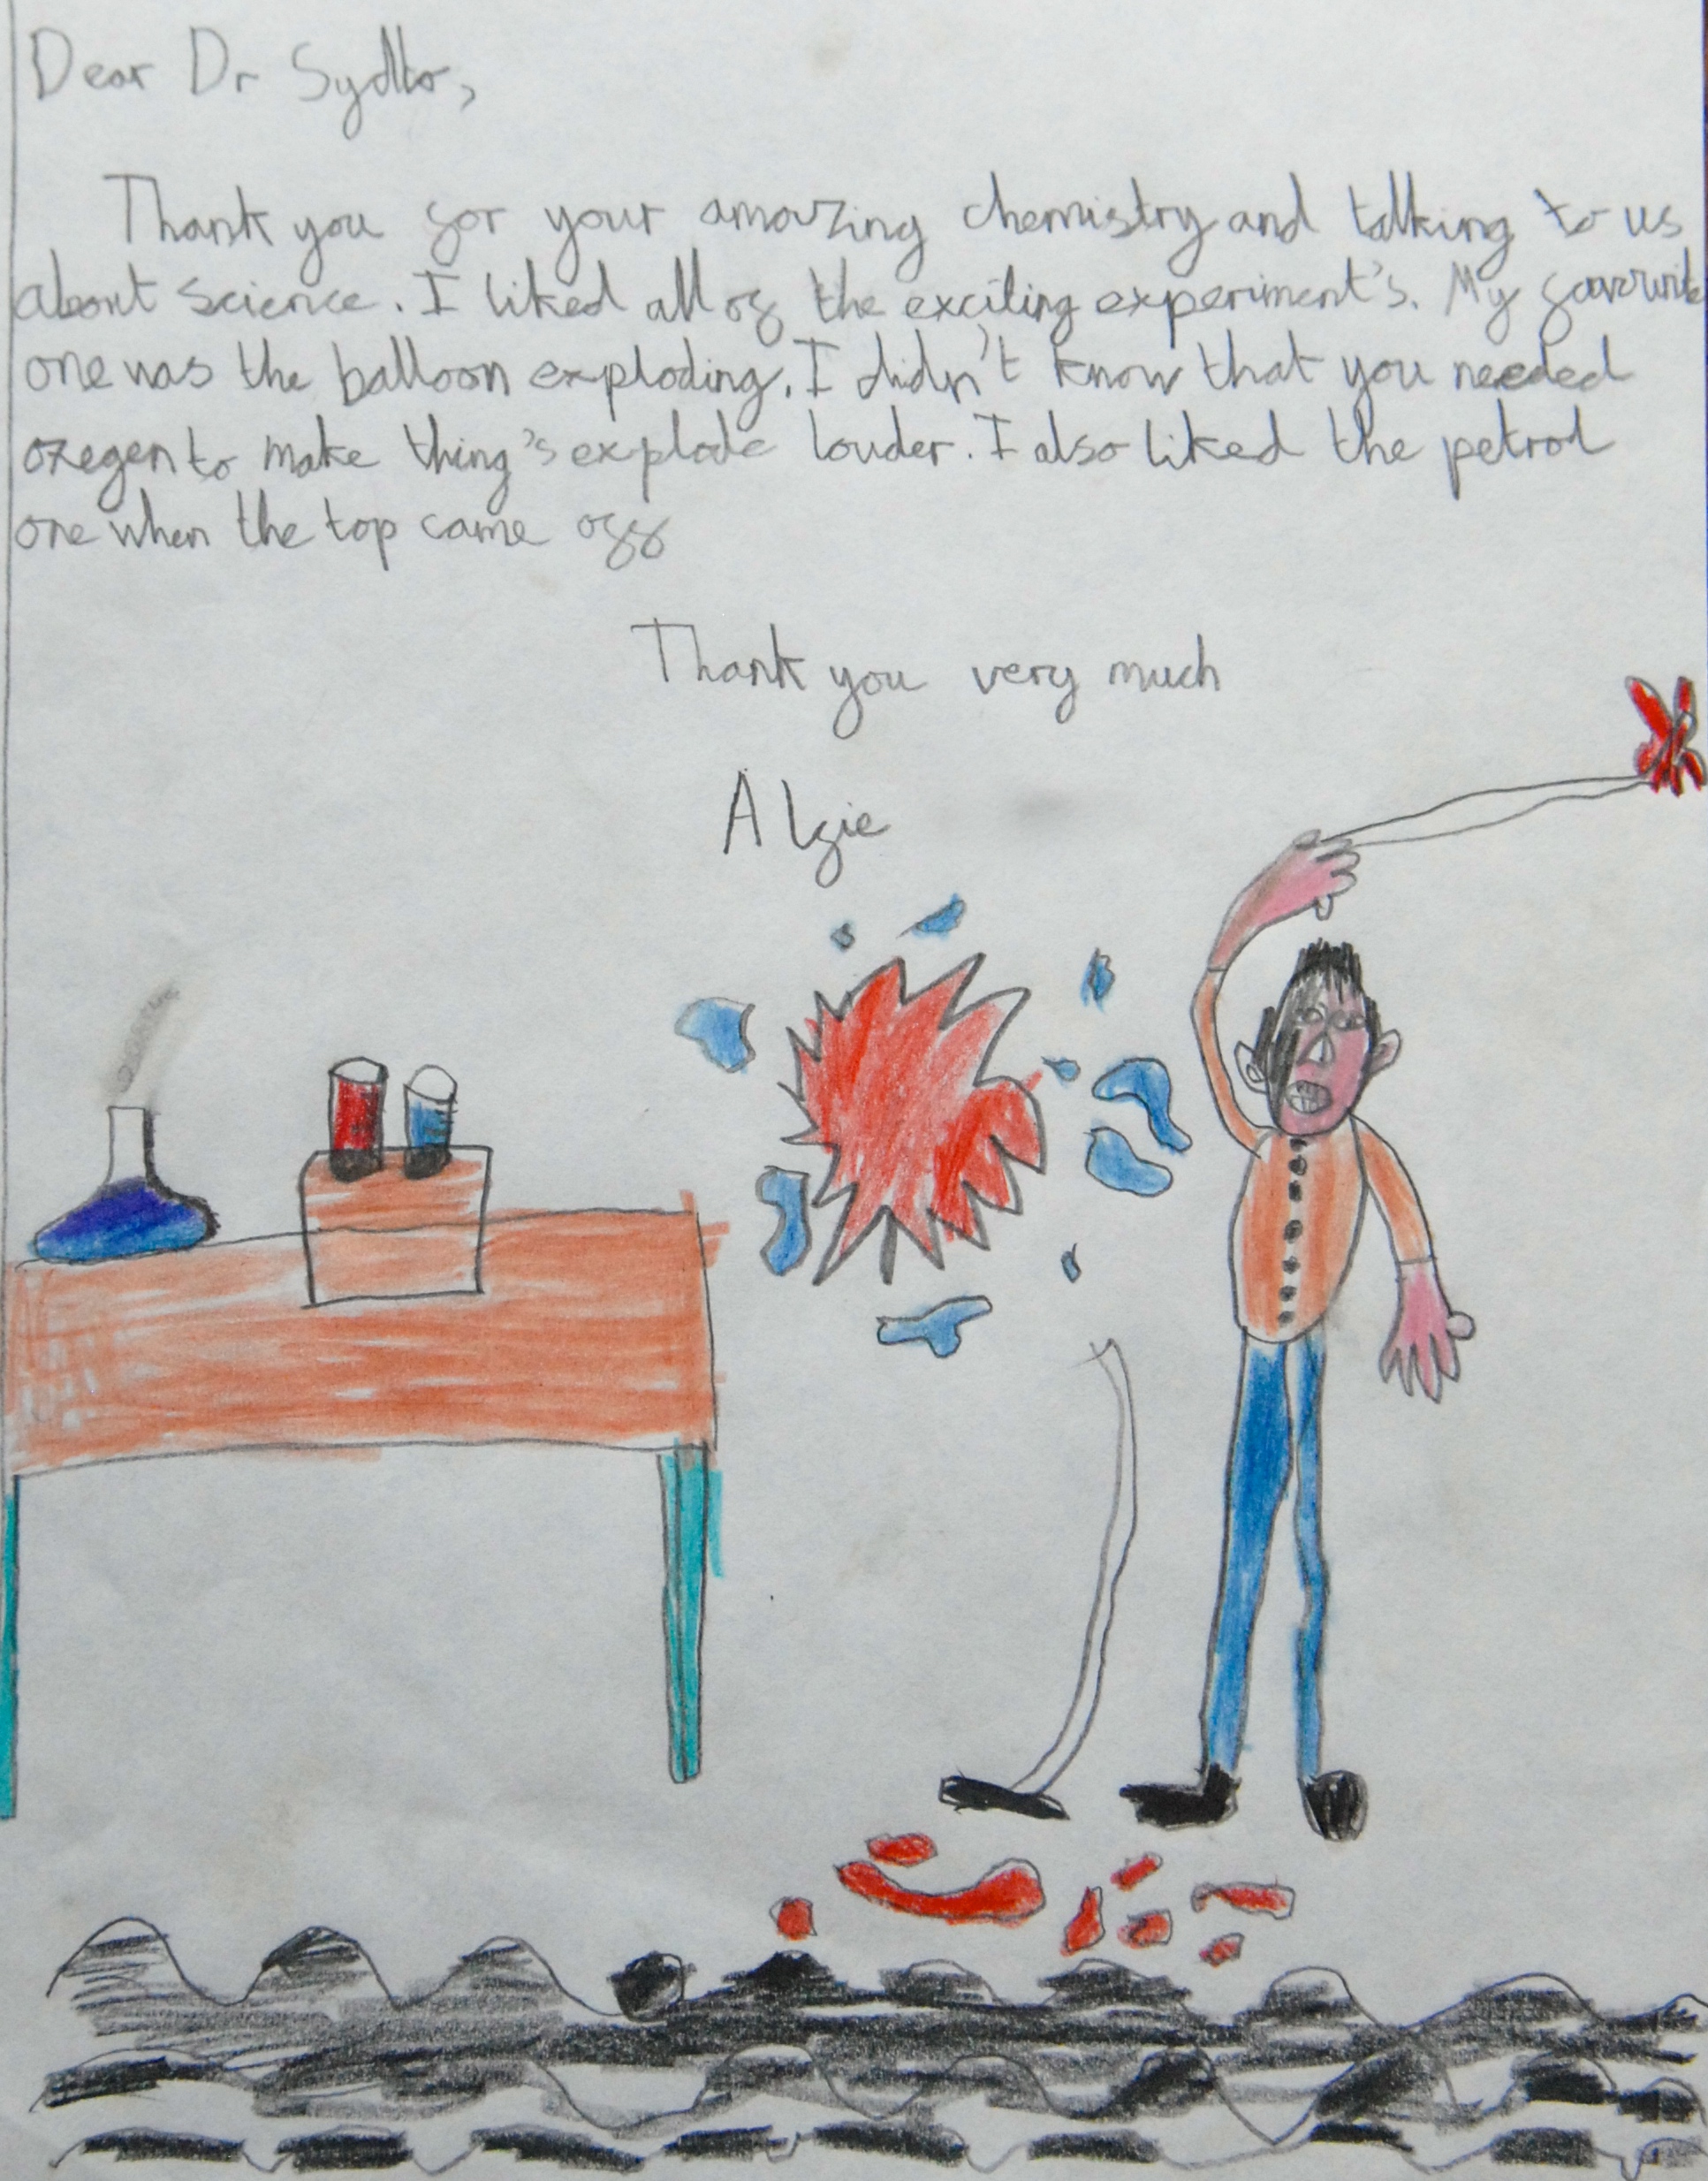 Dear Dr Sydlto,
Thank you for your amazing chemistry and talking to us
about science. I liked all of the exciting experiment's. My
one was the balloon exploding. I didn't know that you needed
oxegen to make thing's explode louder. I also liked the petrol
one when the top came off
Thank you very much
Alfie